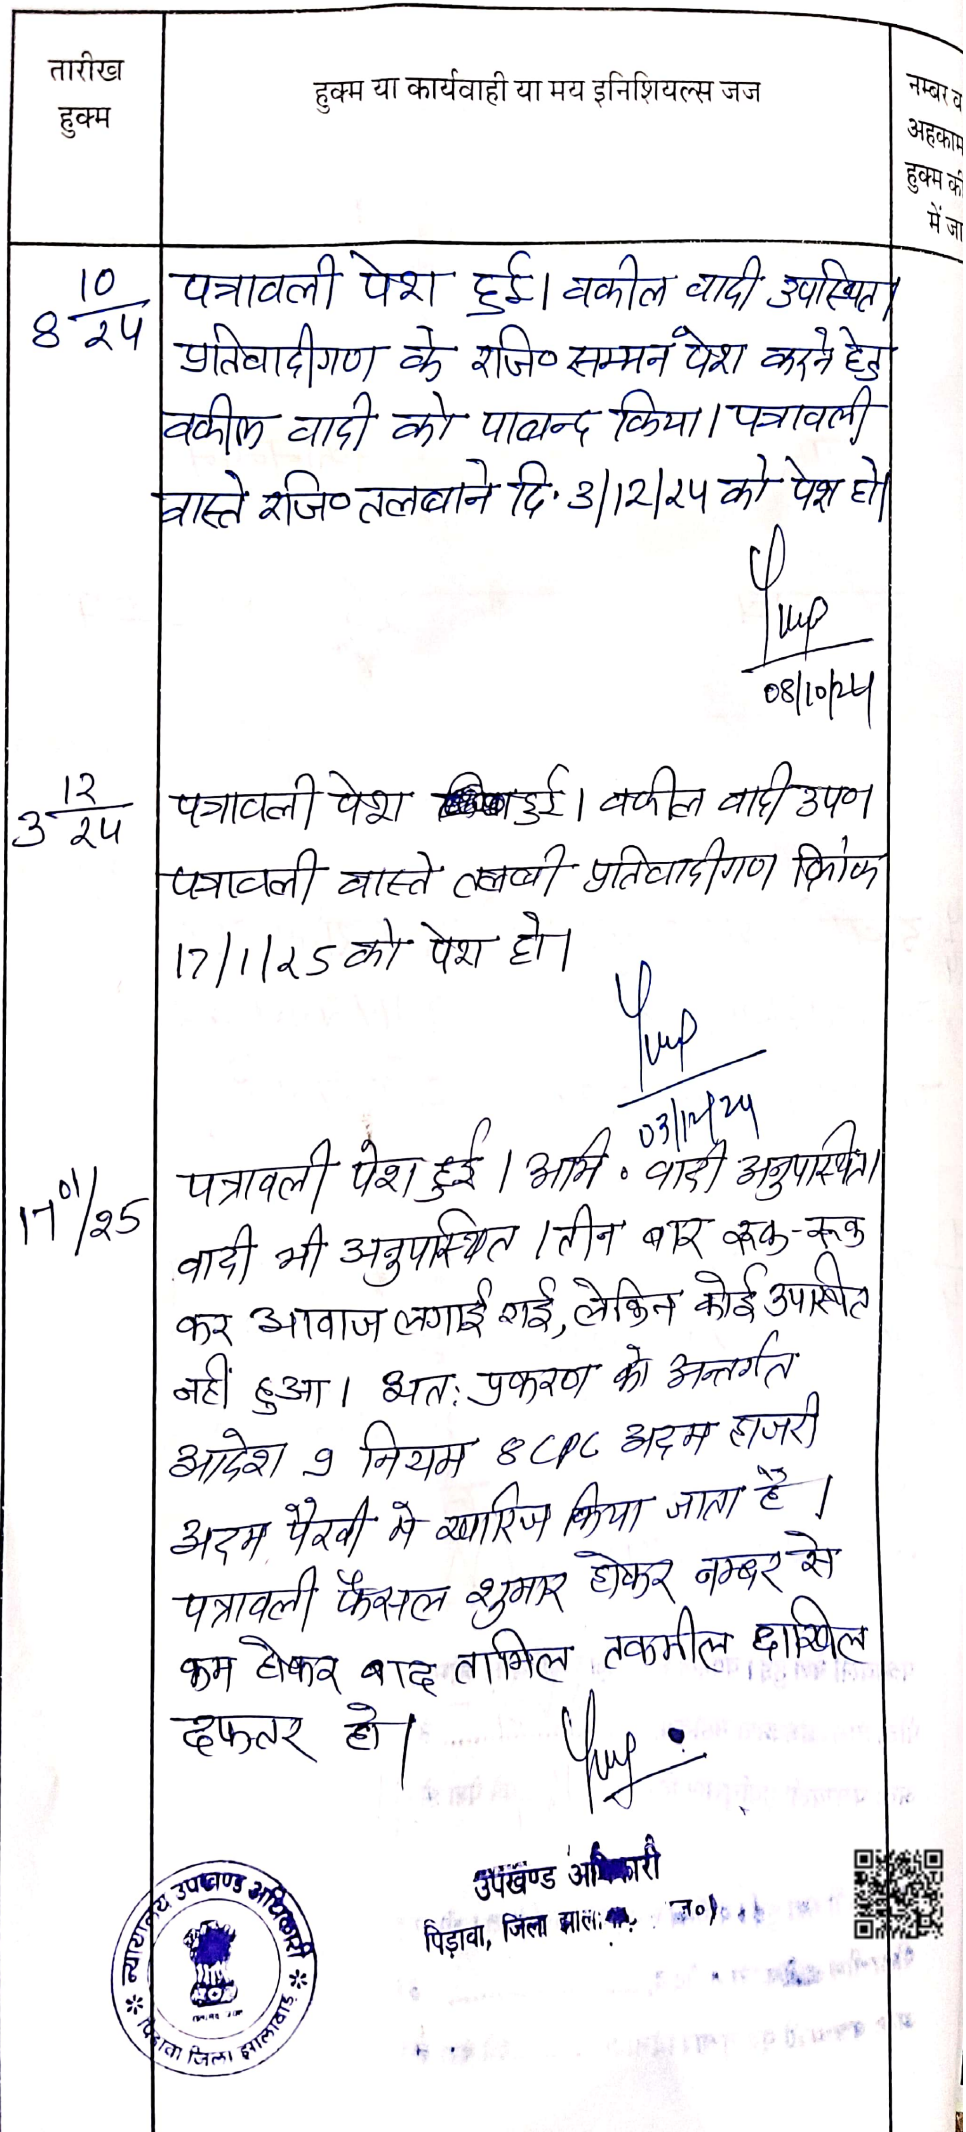 तारीख
हुक्म
हुक्म या कार्यवाही या मय इनिशियल्स जज
नम्बर व
अहकाम
हुक्म की
में जा
8 10/24
पत्रावली पेश हुई। वकील वादी उपस्थित।
प्रतिवादीगण के रजि० सम्मन पेश करने हेतु
वकील वादी को पाबन्द किया। पत्रावली
वास्ते रजि० तलबाने दि. 3/12/24 को पेश हो।
08/10/24
3 12/24
पत्रावली पेश हुई। वकील वादी उप०
पत्रावली वास्ते तलबी प्रतिवादीगण दिनांक
17/1/25 को पेश हो।
03/12/24
17 01/25
पत्रावली पेश हुई। अभि० वादी अनुपस्थित।
वादी भी अनुपस्थित। तीन बार रूक-रूक
कर आवाज लगाई गई, लेकिन कोई उपस्थित
नहीं हुआ। अत: प्रकरण को अन्तर्गत
आदेश 9 नियम 8 CPC अदम हाजरी
अदम पैरवी में खारिज किया जाता है।
पत्रावली फैसल शुमार होकर नम्बर से
कम होकर बाद तामिल तकमील दाखिल
दफ्तर हो।
उपखण्ड अधिकारी
पिड़ावा, जिला झाला
न्यायालय उपखण्ड अधिकारी
पिड़ावा जिला झालावाड़